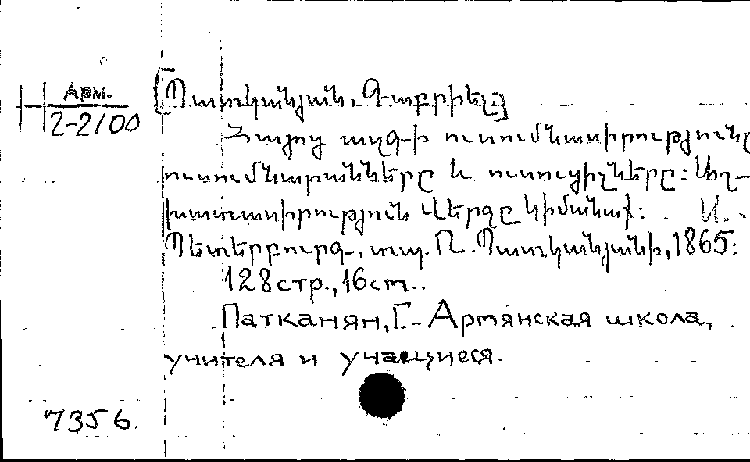 Арм.
2-2100
[Պատկանյան, Գաբրիել]
Հայոց ազգի ուսումնասիրությունը
ուսումնարանները և ուսուցիչները: Աղ-
խատասիրություն վերջը կիմանաք: Ա. -
Պետերբուրգ, տպ. Ռ. Պատկանյանի, 1865:
128стр., 16см..
Патканян, Г. - Армянская школа,
учителя и учащиеся.
7356.